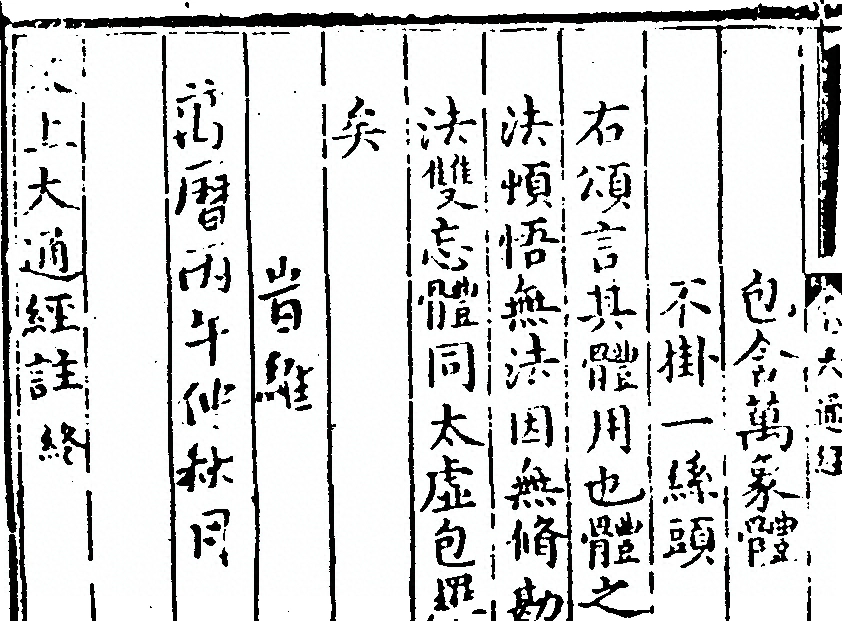 大通經
包含萬象體
不掛一絲頭
右頌言其體用也體之
法頓悟無法因無脩勘
法雙忘體同太虛包羅
矣
旹維
萬曆丙午仲秋月
太上大通經註終